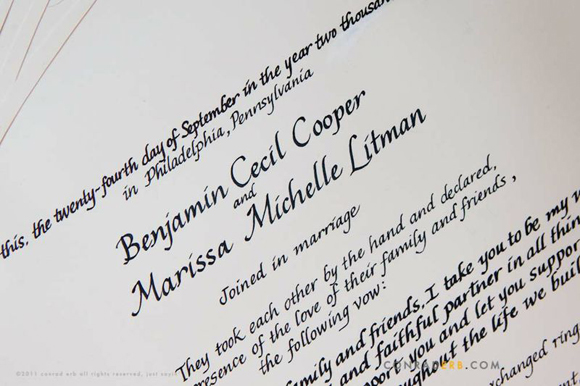 this, the twenty-fourth day of September in the year two thousand
in Philadelphia, Pennsylvania
Benjamin Cecil Cooper
and
Marissa Michelle Litman
Joined in marriage
They took each other by the hand and declared,
presence of the love of their family and friends,
the following vow:
family and friends, I take you to be my
and faithful partner in all thin
you and let you suppor
the life we buil
exchanged ring
©2011 conrad erb all rights reserved, just
CONRADERB.COM